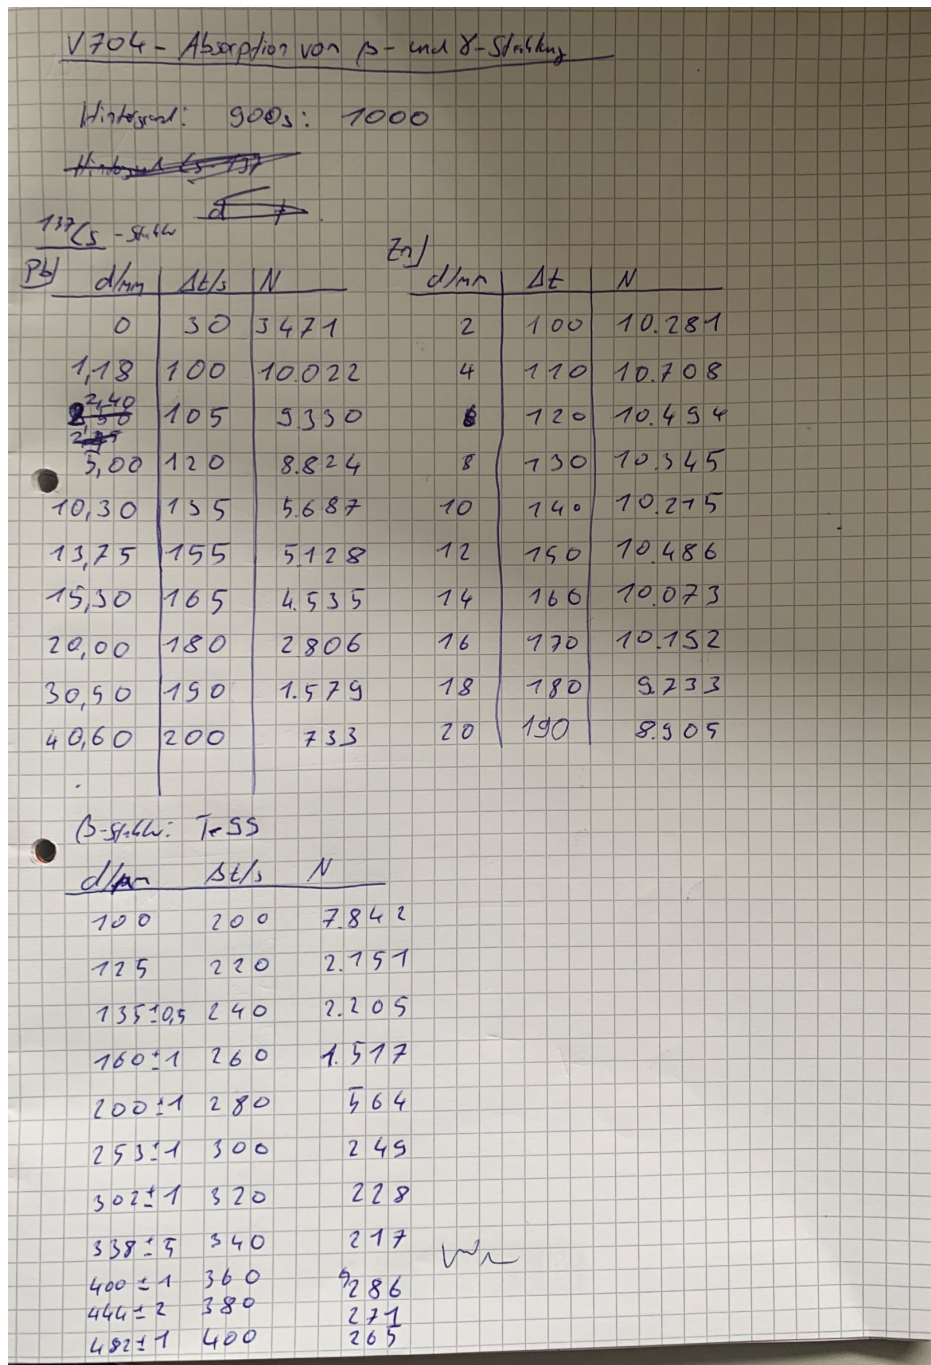 V704 - Absorption von β- und γ-Strahlung
Hintergrund: 900s: 1000
137Cs - Strahler
Pb) d/mm Δt/s N
0 30 3471
1,18 100 10.022
2,40 105 9330
5,00 120 8.824
10,30 135 5.687
13,75 155 5.128
15,30 165 4.535
20,00 180 2806
30,50 190 1.579
40,60 200 733
Zn) d/mm Δt N
2 100 10.281
4 110 10.708
6 120 10.494
8 130 10.345
10 140 10.215
12 150 10.486
14 160 10.073
16 170 10.152
18 180 9.733
20 190 8.905
β-Strahler: Te99
d/μm Δt/s N
100 200 7.842
125 220 2.151
135±0,5 240 2.205
160±1 260 1.517
200±1 280 564
253±1 300 249
302±1 320 228
338±5 340 217
400±1 360 286
444±2 380 271
482±1 400 265